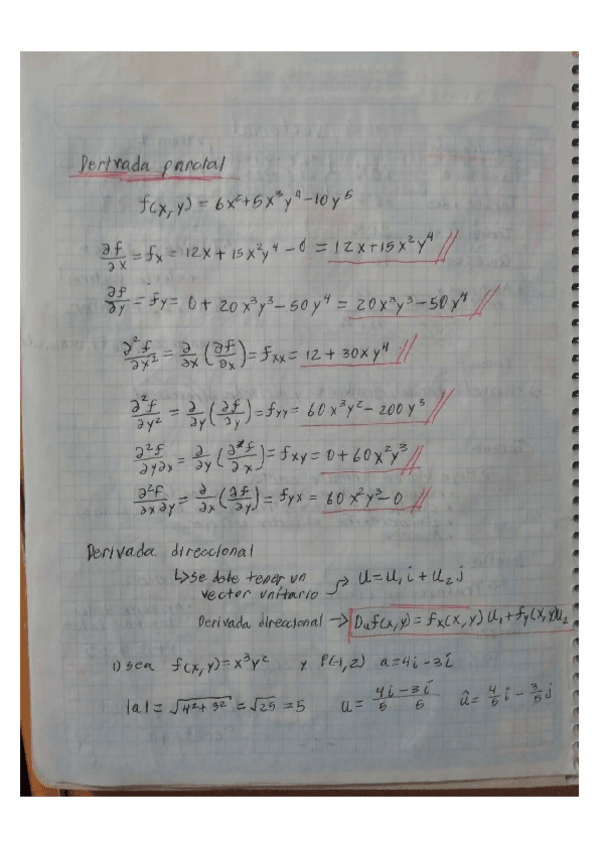 Derivada parcial
f(x, y) = 6x²+5x³y⁴-10y⁵
∂f/∂x = fx = 12x + 15x²y⁴ - 0 = 12x+15x²y⁴
∂f/∂y = fy = 0 + 20x³y³ - 50y⁴ = 20x³y³-50y⁴
∂²f/∂x² = ∂/∂x (∂f/∂x) = fxx = 12 + 30xy⁴
∂²f/∂y² = ∂/∂y (∂f/∂y) = fyy = 60x³y² - 200y³
∂²f/∂y∂x = ∂/∂y (∂²f/∂x) = fxy = 0+60x²y³
∂²f/∂x∂y = ∂/∂x (∂f/∂y) = fyx = 60x²y³-0
Derivada direccional
↳ se debe tener un vector unitario → u = u₁i + u₂j
Derivada direccional → Duf(x,y) = fx(x,y) u₁ + fy(x,y)u₂
1) sea f(x,y) = x³y² y P(-1,2) a=4i-3i
|a| = √4²+3² = √25 = 5 u = 4i/5 - 3i/5 û = 4/5 i - 3/5 j